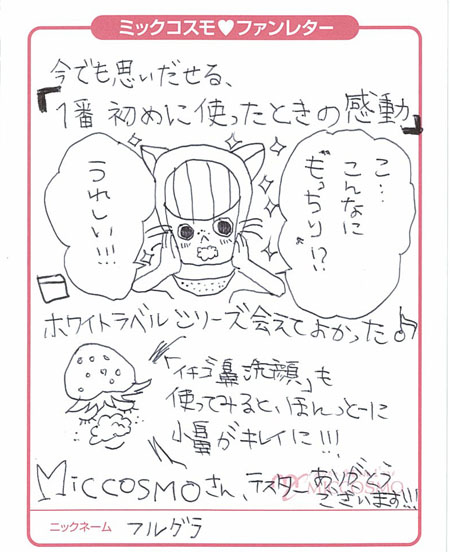 ミックコスモ♥ファンレター
今でも思いだせる、
「1番 初めに使ったときの感動」
こ…
こんなに
"もっちり"!?
うれしい!!!
ホワイトラベルシリーズ会えてよかった♪
「イチゴ鼻洗顔」も
使ってみると、ほんっとーに
小鼻がキレイに!!!
MICCOSMOさん、テスターありがとう
ございます!!!
ニックネーム フルグラ